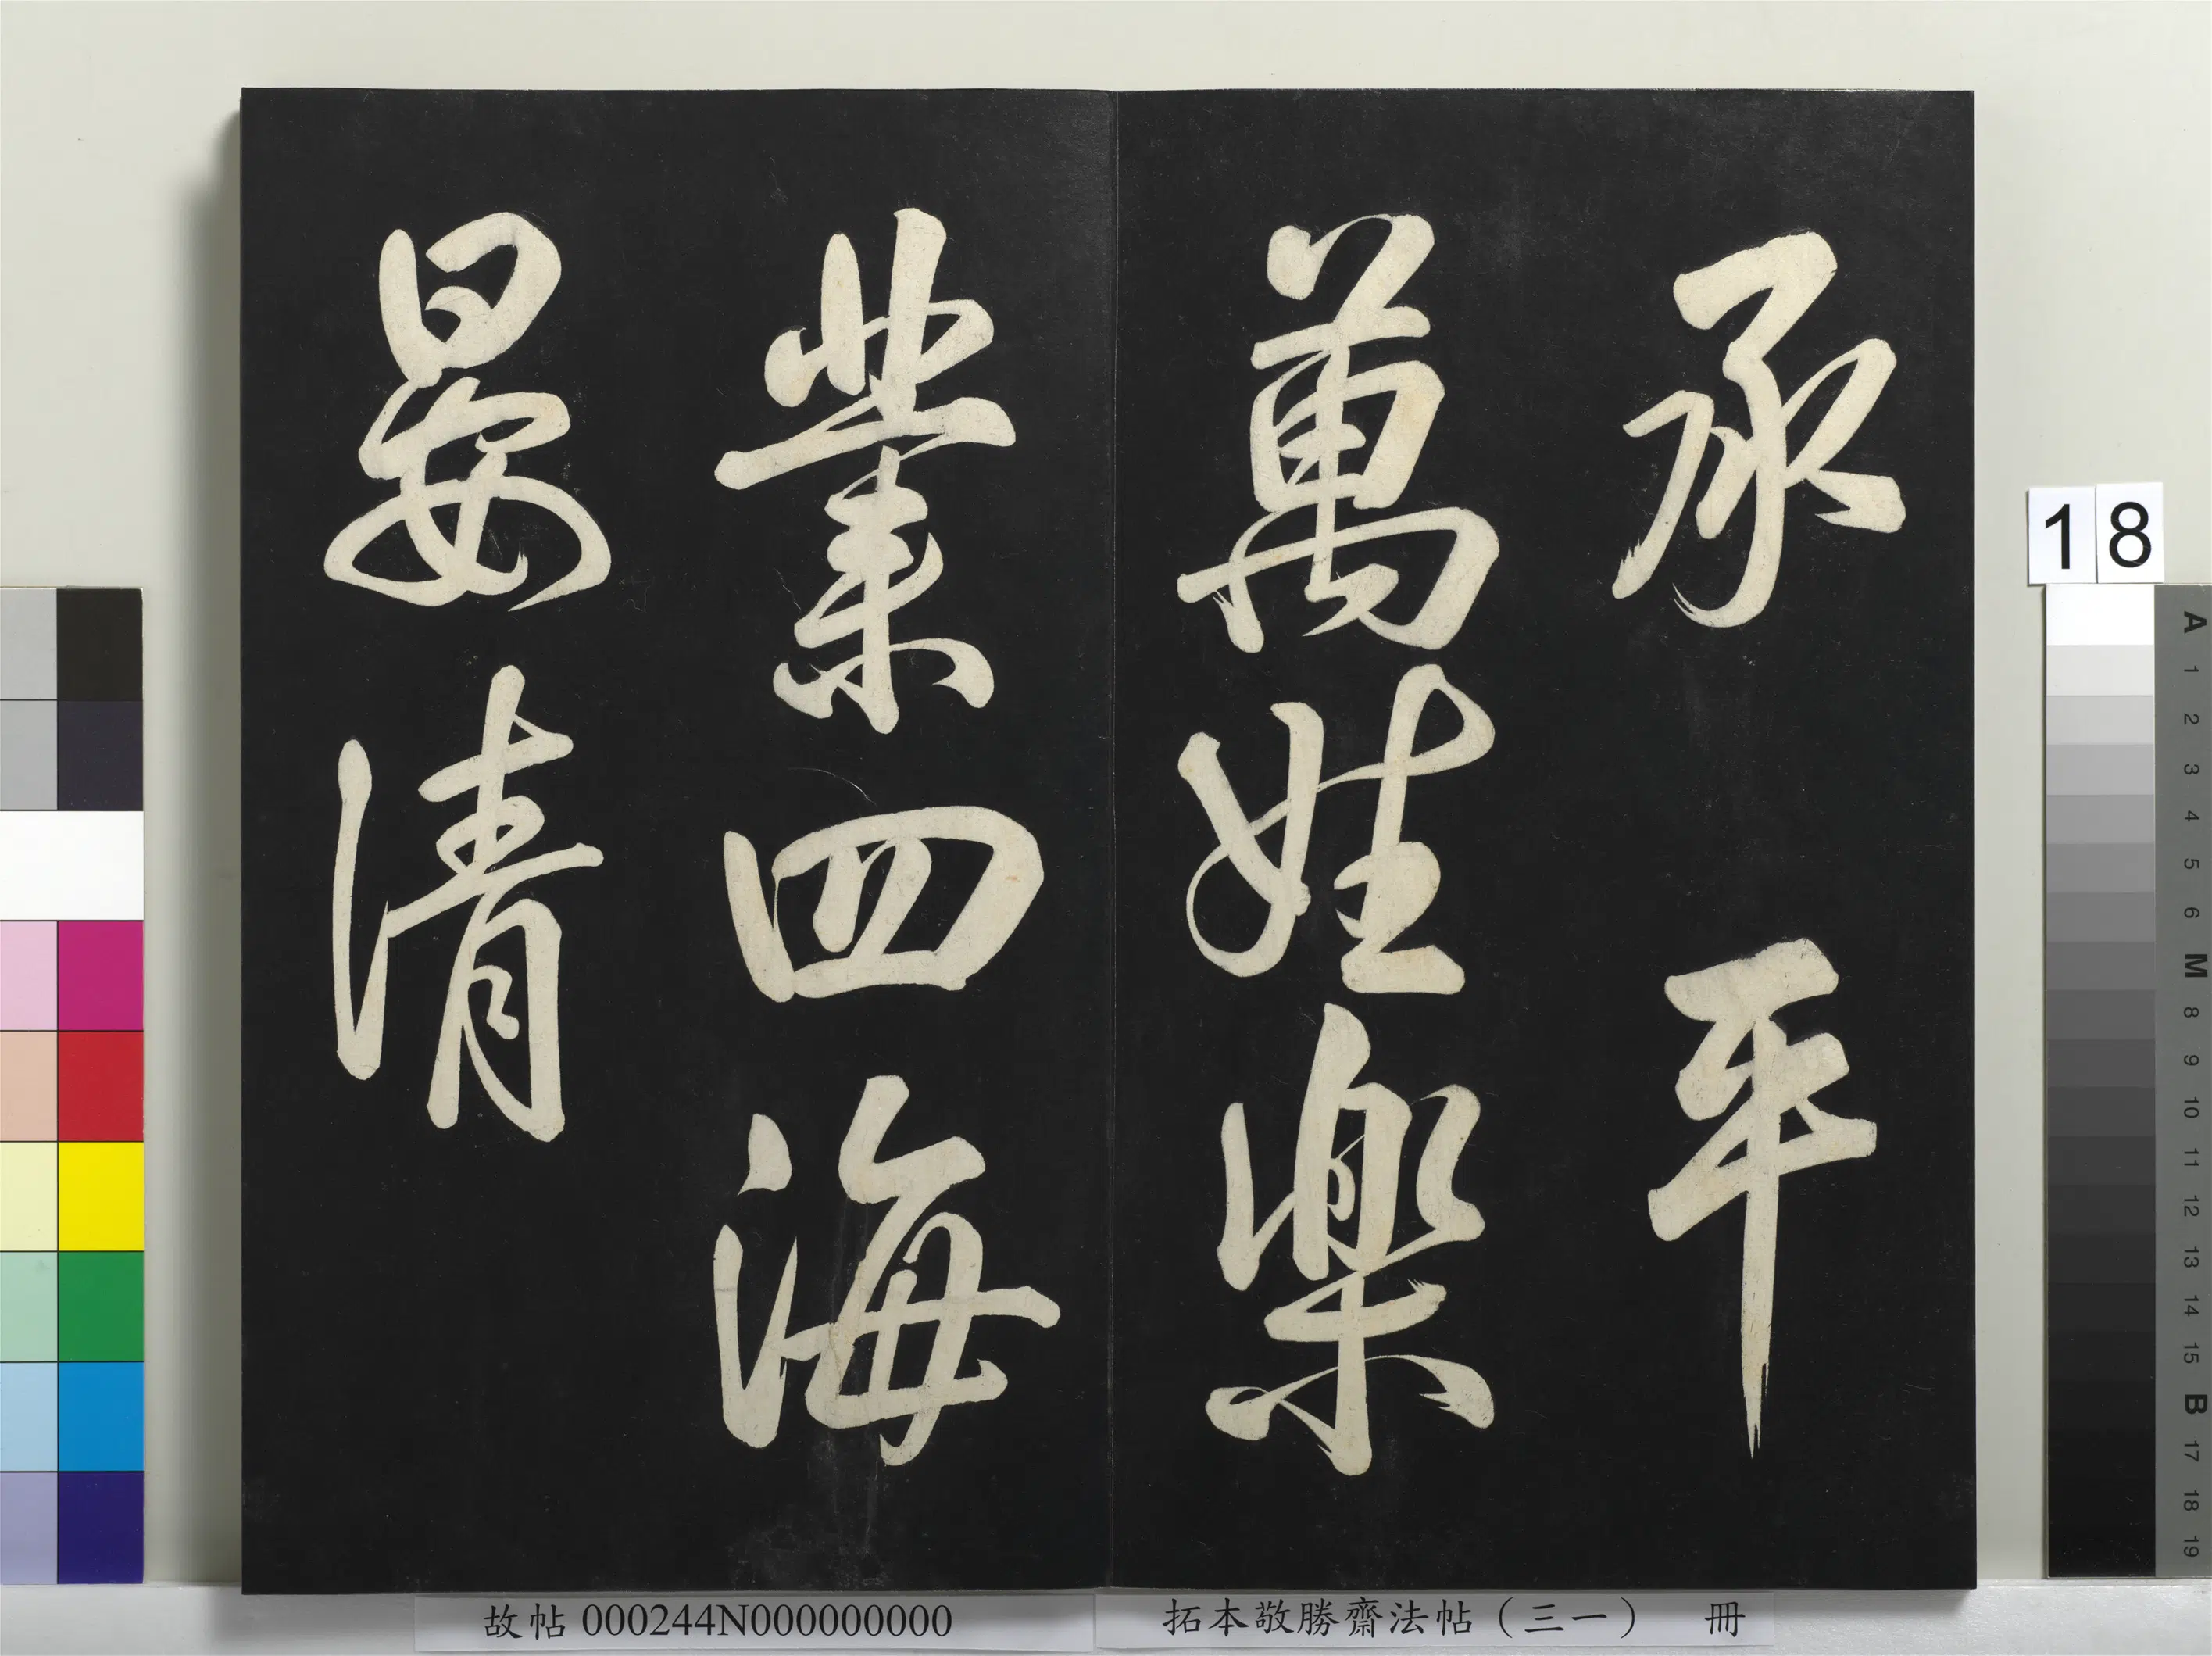 承平
萬姓樂
業四海
晏清
18
A
1
2
3
4
5
6
M
8
9
10
11
12
13
14
15
B
17
18
19
故帖 000244N000000000
拓本敬勝齋法帖（三一） 冊